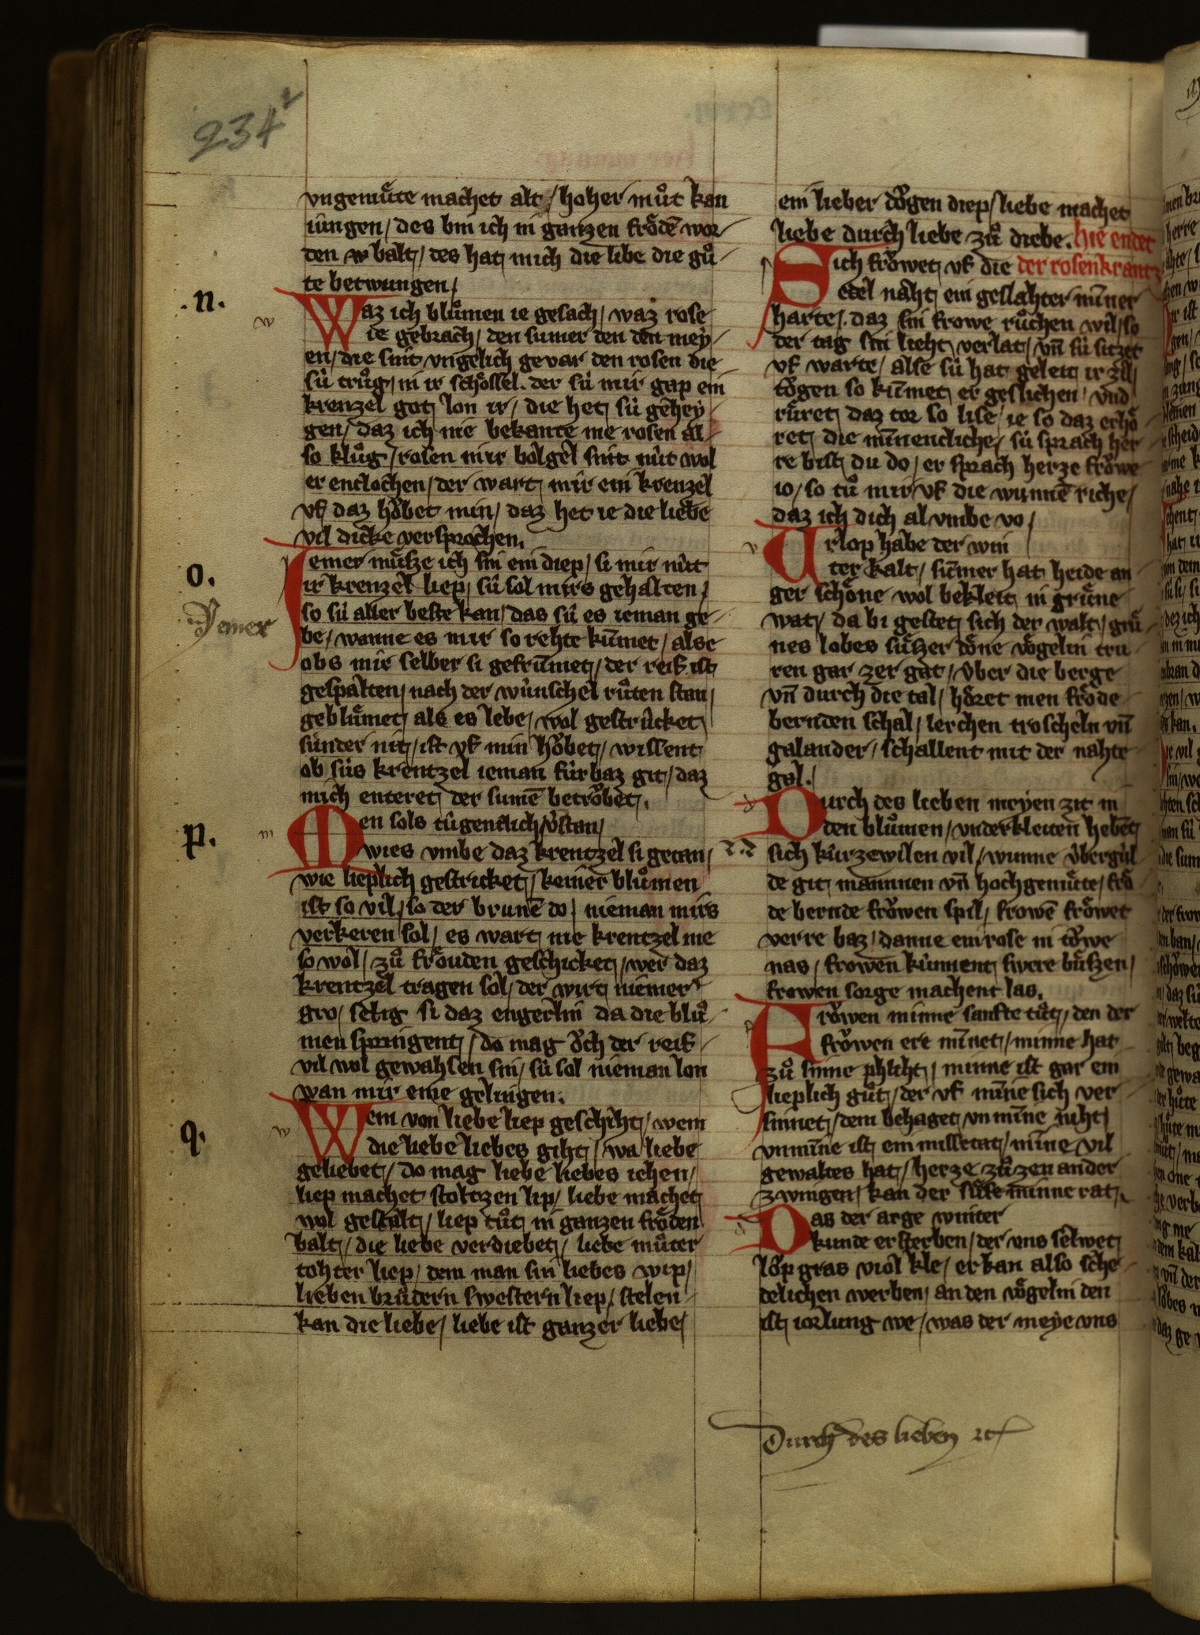 234v
vngemuͤte machet alt / hoher muͦt kan
iungen / des bin ich in ganzen froͤdē wor-
den balt / des hat mich die libe die guͦ-
te betwungen /
.n.
w
Waz ich bluͦmen ie gesach / waz rose
ie gebrach / den sumer den den mey-
en / die sint vngelich gevar den rosen die
sú truͦg / in ir schoͤssel . der sú mir gap ein
krenzel got lon ir / die het sú gehey-
gen / daz ich nie bekante nie rosen al-
so kluͦg / rosen mir bolgel sint nút wol
er entlochen / der wart mir ein krenzel
vf daz hoͮbet min / daz het ie die liebe
vil dicke versprochen.
o.
Jemer
Jemer muͤsze ich sin ein diep / si mir nút
ir krenzel liep / sú sol mirs gehalten /
so sú aller beste kan / das sú es ieman ge-
be / wanne es mir so rehte kūmet / alse
obs mir selber si gefrūmet / der reif ist
gespalten / nach der wúnschel ruͦten stan /
gebluͤmet / als es lebe / wol gestrúcket
sunder nit / ist vf min hoͮbet / wissent
ob sús krentzel ieman fúrbaz git / daz
mich enteret der sumē betroͤbet.
p.
m
Men sols túgentlich v̓stan /
wies vmbe daz krentzel si getan /
wie lieplich gestricket / keiner bluͦmen
ist so vil / so der brunē do / nieman mirs
verkeren sol / es wart nie krentzel nie
so wol / zuͦ froͤuden geschicket / wer daz
krentzel tragen sol / der wirt niemer
gro / selig si daz engerlin da die bluͦ-
men springent / do mag oͮch der reif
vil wol gewahsen sin / sú sol nieman lon
wan mir eine gelingen.
q.
w
Wem von liebe liep geschiht / wem
die liebe liebes giht / wa liebe
geliebet / do mag liebe liebes iehen /
liep machet stoltzen lip / liebe machet
wol gestalt / liep tuͦt in ganzen froͤden
balt / die liebe verdiebet / liebe muͦter
tohter liep / dem man sin liebes wip /
lieben bruͤdern swestern liep / stelen
kan die liebe / liebe ist ganzer liebe /
ein lieber toͮgen diep / liebe machet
liebe durch liebe zuͦ diebe . hie endet
Sich froͤwet vf die der rosenkrantz
edel naht ein geslahter minner
harte / . daz sin frowe ruͦchen wil / so
der tag sin lieht verlat / vn̄ sú sitzet
vf warte / alse sú hat geleit ir zil /
toͮgen so kūmet er geslichen / vnd
ruͤret daz tor so lise / ie so daz erhoͤ-
ret die minnencliche / sú sprach her-
re bist du do / er sprach herze froͮwe
io / so tuͦ mir vf die wunne riche /
daz ich dich al vmbe vo /
v
Vrlop habe der win
ter kalt / sūmer hat heide an
ger schoͤne wol bekleit in gruͤne
wat / da bi gestet sich der walt / gruͤ-
nes lobes suͤszer doͤne voͤgelin tru-
ren gar zer gat / v́ber die berge
vn̄ durch die tal / hoͤret men froͤde
bernden schal / lerchen troscheln vn̄
galander / schallent mit der nahte-
gal . /
d
Durch des lieben meyen zit in
den bluͦmen / vnder kleiten hebent
sich kúrzewilen vil / wunne v́bergúl-
de git mannen vn̄ hochgemuͤte / froͤ-
de bernde froͮwen spil / frowē froͤwet
verre baz / danne ein rose in toͮwe
nas / frowen kunnent swere buͤszen /
frowen sorge machent las.
f
Froͮwen minne sanfte tuͦt / den der
froͮwen ere minnet / minne hat
zuͦ sinne phliht / minne ist gar ein
lieplich guͦt / der vf minne sich ver-
sinnet / dem behaget vnminne niht /
vnminne ist ein missetat / mine vil
gewaltes hat / herze zuͦzen ander
zwingen / kan der suͤsse minne rat.
d
Das der arge winter
kunde ersterben / der vns selwet
loͮp gras viol kle / er kan also sche-
delichen werben / an den voͤgelin den
ist iorlung we / was der meye vns
Durch des lieben ꝛc